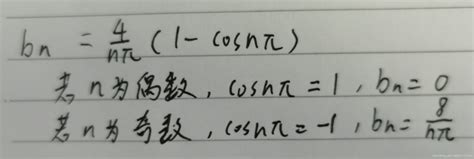 bn = 4/nπ (1 - cosnπ)
若 n 为偶数, cosnπ = 1, bn = 0
若 n 为奇数, cosnπ = -1, bn = 8/nπ